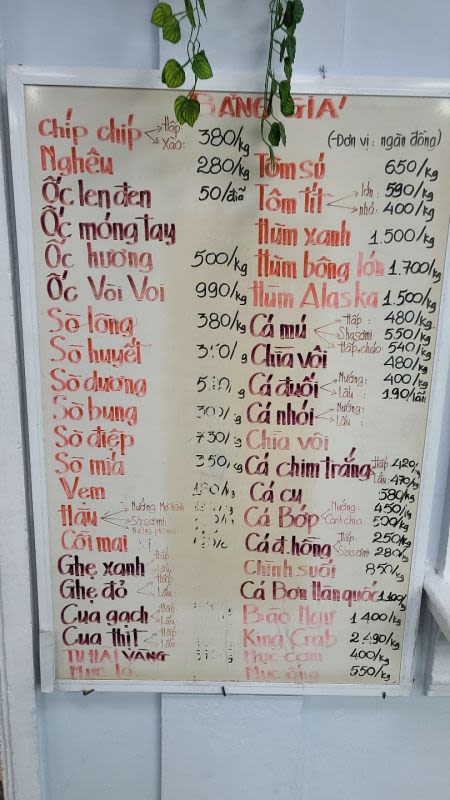 BẢNG GIÁ
(-Đơn vị: ngàn đồng)
Chíp chíp Hấp: Xào: 380/kg
Nghêu 280/kg
Ốc len đen 50/đĩa
Ốc móng tay
Ốc hương 500/kg
Ốc Vòi Voi 990/kg
Sò lông 380/kg
Sò huyết
Sò dương
Sò bung 300/kg
Sò điệp 730/kg
Sò mía 350/kg
Vẹm
Hàu Nướng Mỡ hành Shasơmi
Cồi mai
Ghẹ xanh Hấp Lẩu
Ghẹ đỏ Hấp Lẩu
Cua gạch Hấp Lẩu
Cua thịt Hấp Lẩu
TU HÀI VÀNG
Mực lá
Tôm sú 650/kg
Tôm tít lớn: 590/kg
nhỏ: 400/kg
Hùm xanh 1.500/kg
Hùm bông lớn 1.700/kg
Hùm Alaska 1.500/kg
Cá mú Hấp: 480/kg
Shasơmi: 550/kg
Hấp+cháo: 540/kg
Chìa vôi 480/kg
Cá đuối Nướng: 400/kg
Lẩu: 190/lẩu
Cá nhói Nướng: Lẩu:
Chìa vôi
Cá chim trắng Hấp 420/kg
Lẩu: 470/kg
Cá cu 580/kg
Cá Bớp Nướng: 450/kg
Canh chua: 500/kg
Cá d.hồng Hấp 250/kg
Sasơmi: 280/kg
Chình suối 850/kg
Cá Bơn Hàn quốc 1.100/kg
Bào Ngư 1400/kg
King Crab 2490/kg
Mực cơm 400/kg
Mực ống 550/kg